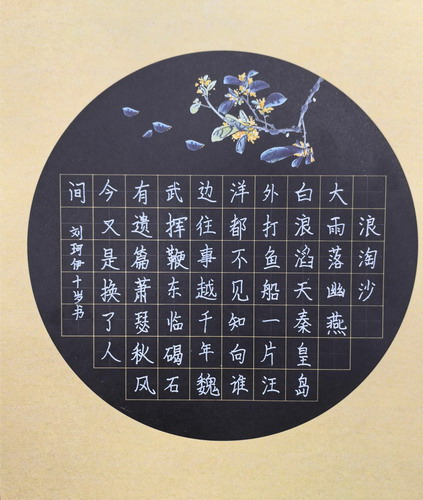 浪淘沙
大雨落幽燕
白浪滔天秦皇岛
外打鱼船一片汪
洋都不见知向谁
边往事越千年魏
武挥鞭东临碣石
有遗篇萧瑟秋风
今又是换了人
间
刘珂伊十岁书